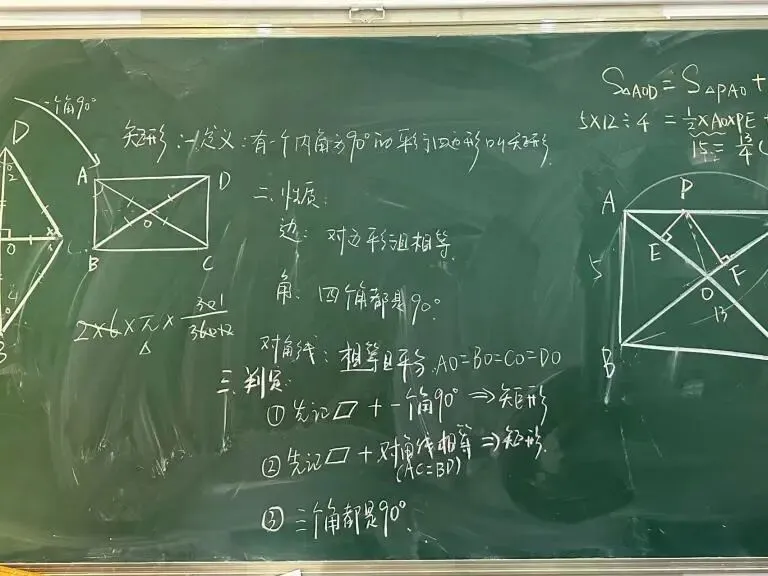 一个角90°
D
2
O
矩形:一、定义:有一个内角为90°的平行四边形叫矩形.
A D
O
B C
二、性质:
边: 对边平行且相等.
角: 四个角都是90°.
对角线: 相等且平分. AO=BO=CO=DO
三、判定:
① 先证▱ + 一个角90° ⇒矩形
② 先证▱ + 对角线相等 ⇒矩形.
(AC=BD)
③ 三个角都是90°.
S△AOD = S△PAO +
5×12÷4 = ½×AO×PE
15 = 13/4 (
A P
E F
5
O
13
B